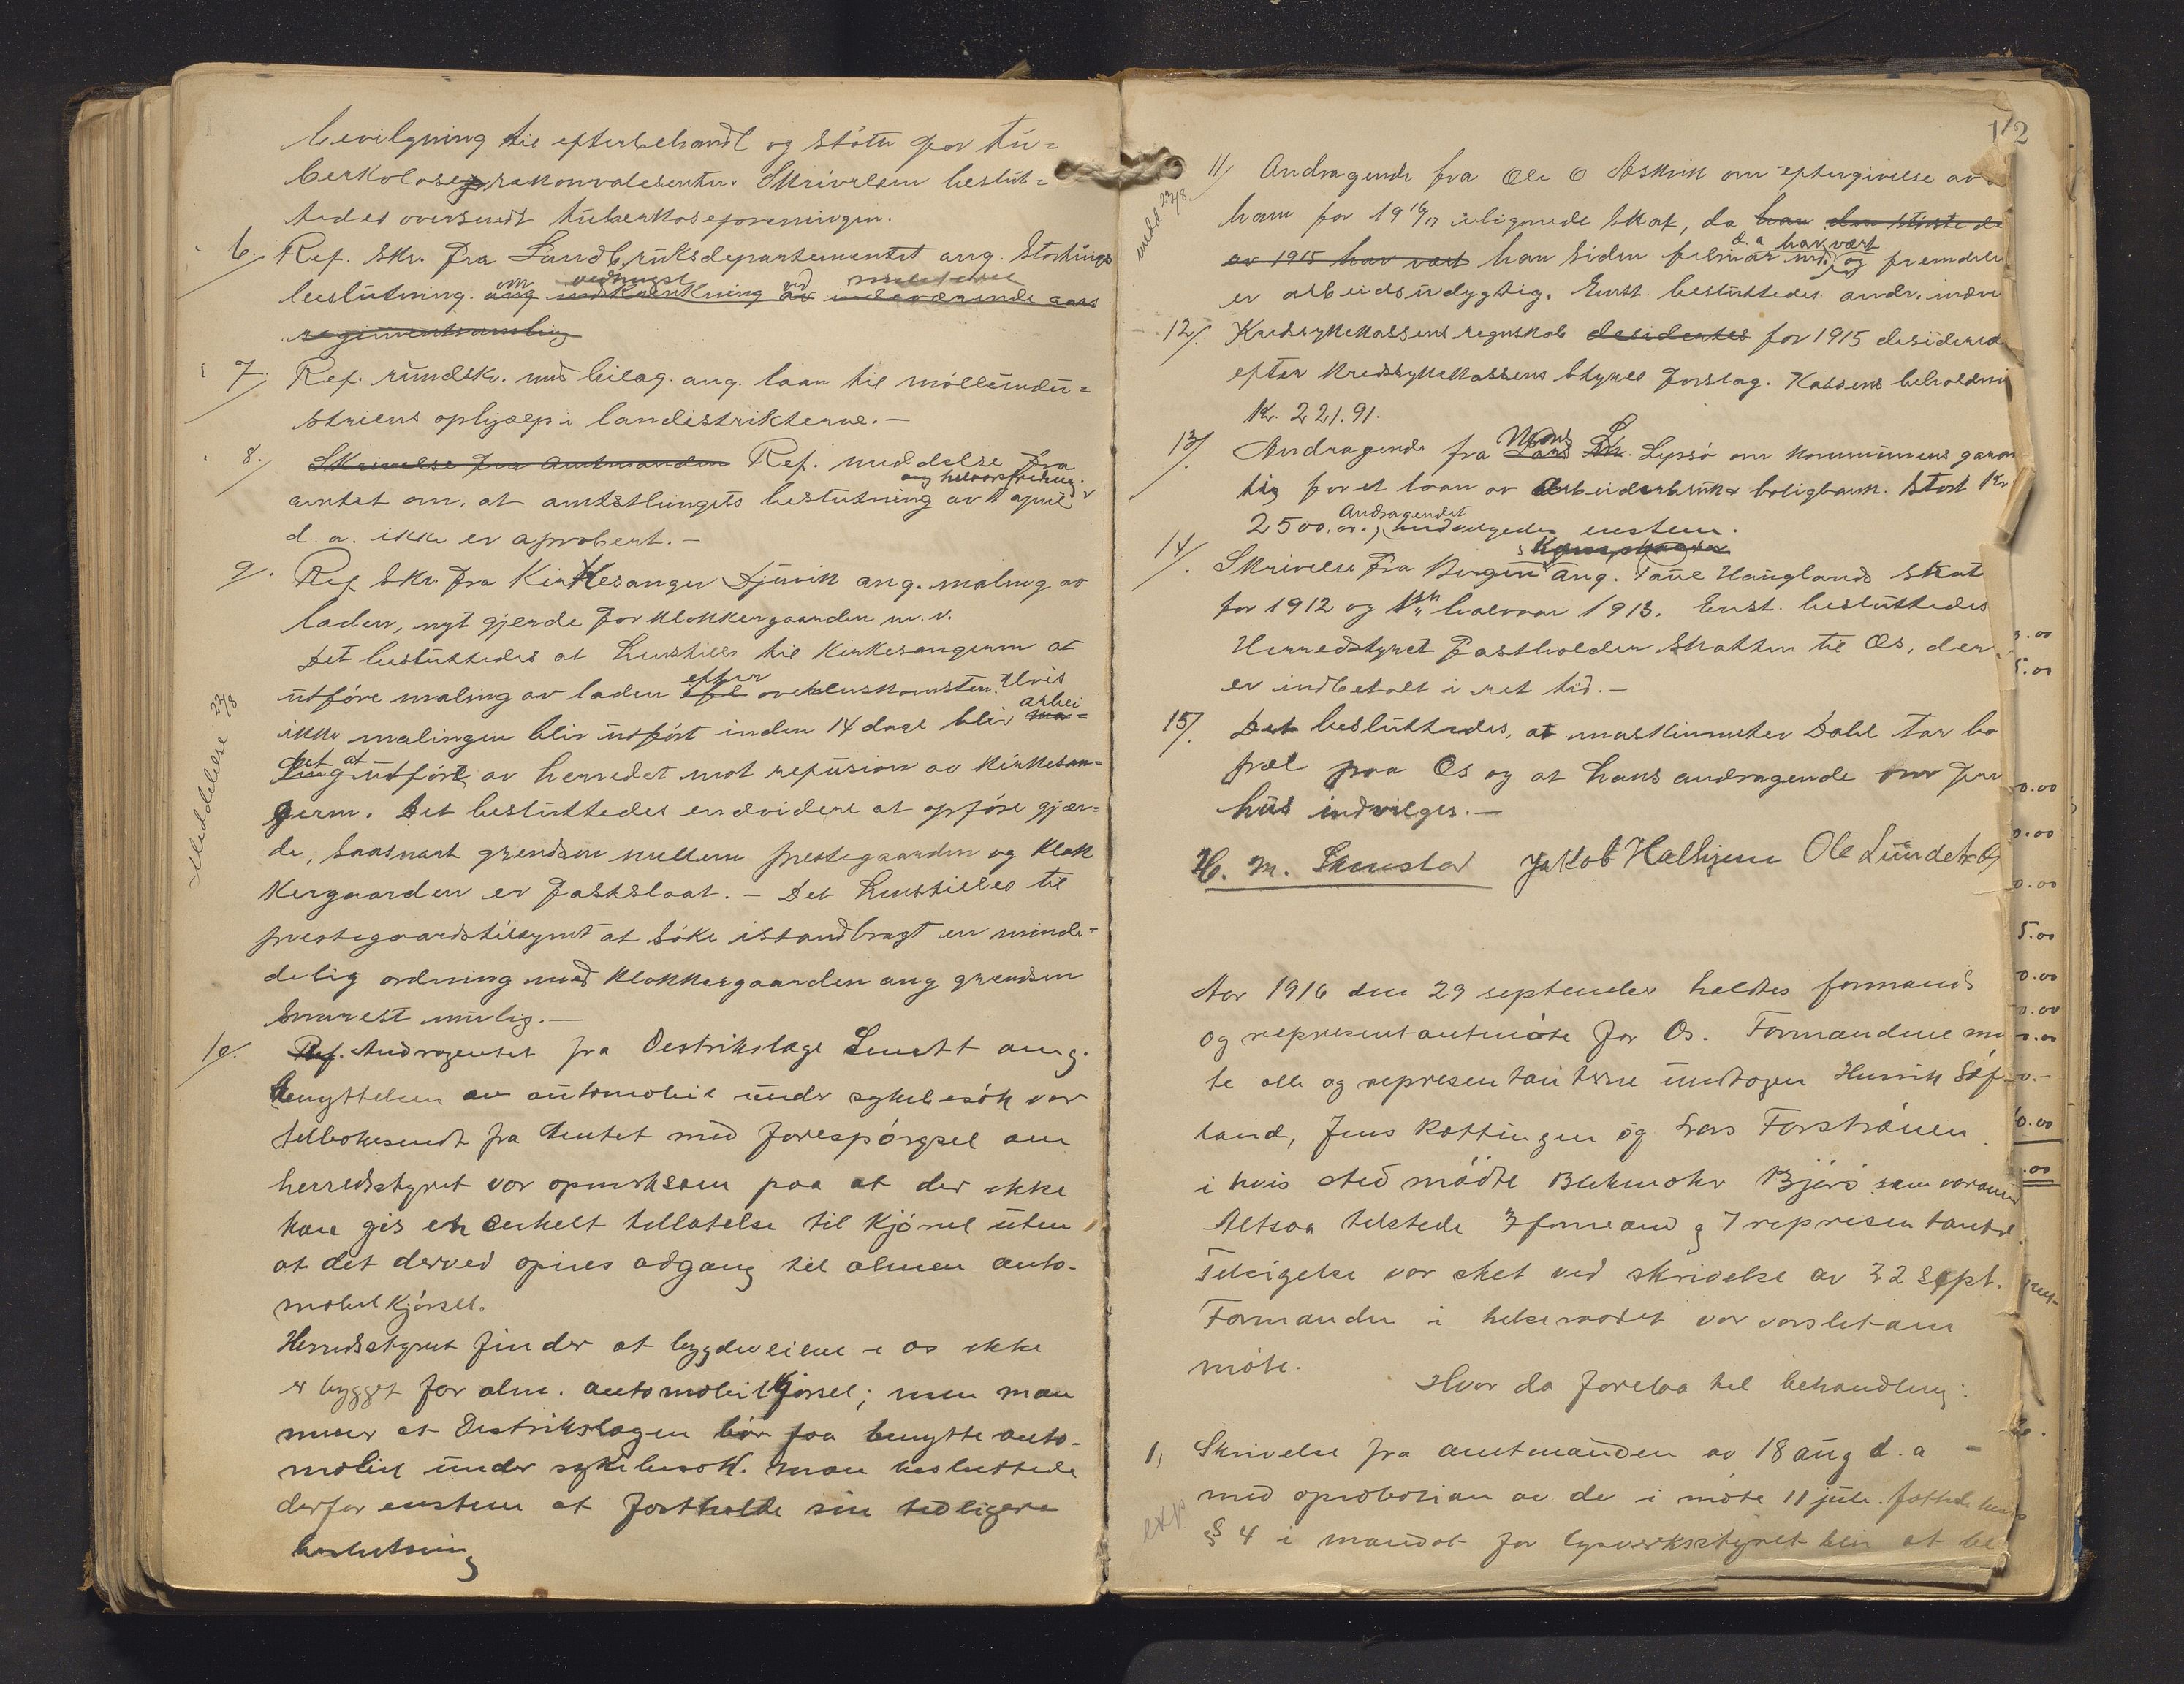 bevilgning til efterbehandl og støtte for tu=
berkoloserekonvalesenter. Skrivelsen beslut=
tedes oversendt tuberkoseforeningen.
6. Ref. Skr. fra Landbruksdepartementet ang. Stortings
beslutning. ang indskrænkning av indeværende aars
om vedrugst ved militære
regimentsamling
7. Ref. rundskr. med bilag. ang. laan til mølleindu=
striens ophjælp i landistrikterne.—
8. Skrivelse fra Amtmanden Ref. meddelse fra
amtet om, at amtstingets beslutning av 11 april
ang helaarsfredning
d. a. ikke er aprobert.—
9. Ref Skr fra Kirkesanger Djuvik ang. maling av
laden, nyt gjerde for klokkergaarden m. v.
Det besluttedes at henstille til Kirkesangeren at
utføre maling av laden efter overenskomsten. Hvis
ikke malingen blir utført inden 14 dage blir arbei=
det at utføre av herredet mot refusion av Kirkesan=
geren. Det besluttedes endvidere at opføre gjær=
de, saasnart grendsen mellem prestegaarden og Klok
kergaarden er fastslaat.— Det henstilles til
prestegaardstilsynet at søke istandbragt en minde=
delig ordning med Klokkergaarden ang grendsen
snarest mulig.—
Meddelelse 23/8
10. Ref. Andragendet fra Destrikslæge Lmstt ang.
benyttelsen av automobil under sykebesøk var
tilbakesendt fra Amtet med forespørgsel om
herredstyret var opmerksom paa at der ikke
kan gis en enkelt tillatelse til Kjørsel uten
at det derved opnes adgang til almen auto-
mobilkjørsel.
Herredsstyret finder at bygdeveiene i os ikke
er bygget for alm. automobilkjørsel; men man
mener at Destrikslægen bør faa benytte auto-
mobil under sykebesøk. Man besluttede
derfor enstem at fastholde sin tidligere
beslutning
112
medd. 23/8
11/ Andragende fra Ole O Askvik om eftergivelse av
ham for 1916/17 ilignede skat, da han den største de
av 1915 har vært han siden februar md. d. a har vært og fremdeles
er arbeidsudygtig. Enst. besluttedes andr. indv
12/. Kredssykekassens regnskab desidertes for 1915 desidered
efter Kredssykekassens styres forslag. Kassens beholdni
Kr. 221.91.
13/. Andragende fra Mons L. Lyssø om kommunens garan
tig for et laan av Arbeiderbruk & boligbank. stort Kr
2500.00., Andragendet indvilgedes enstem.
14/. Skrivelse fra Bergen ang. Paul Hauglands skat
for 1912 og 1ste halvaar 1913. Enst. besluttedes
Herredstyret fastholder skatten til Os, der
er indbetalt i ret tid.—
15/. Det besluttedes, at maskinmester Dahl tar bo
pæl paa Os og at hans andragende om fri
hus indvilges.—
H. M. Lunestad Jakob Hallgjem Ole Lundetræ
Aar 1916 den 29 september holdtes formands
og representantmøte for Os. Formændene mø
te alle og representanterne undtagen Henrik Søf-
land, Jens Køttingen og Lars Forstrønen
i hvis sted møtte Bjørø som varamd
Altsaa tilstede 7 formænd og 7 representanter.
Tilsigelse var sket ved skrivelse av 22 Sept.
Formanden i helseraadet var varslet om
møte.
Hvor da forelaa til behandling:
1, Skrivelse fra amtmanden av 18 aug d. a -
med aprobation av de i møte 11 juli. fattede
exp
§ 4 i mandat for lysverksstyret blir at be
5.00
0.00
0.00
0.00
5.00
0.00
0.00
0.00
0.00
.00